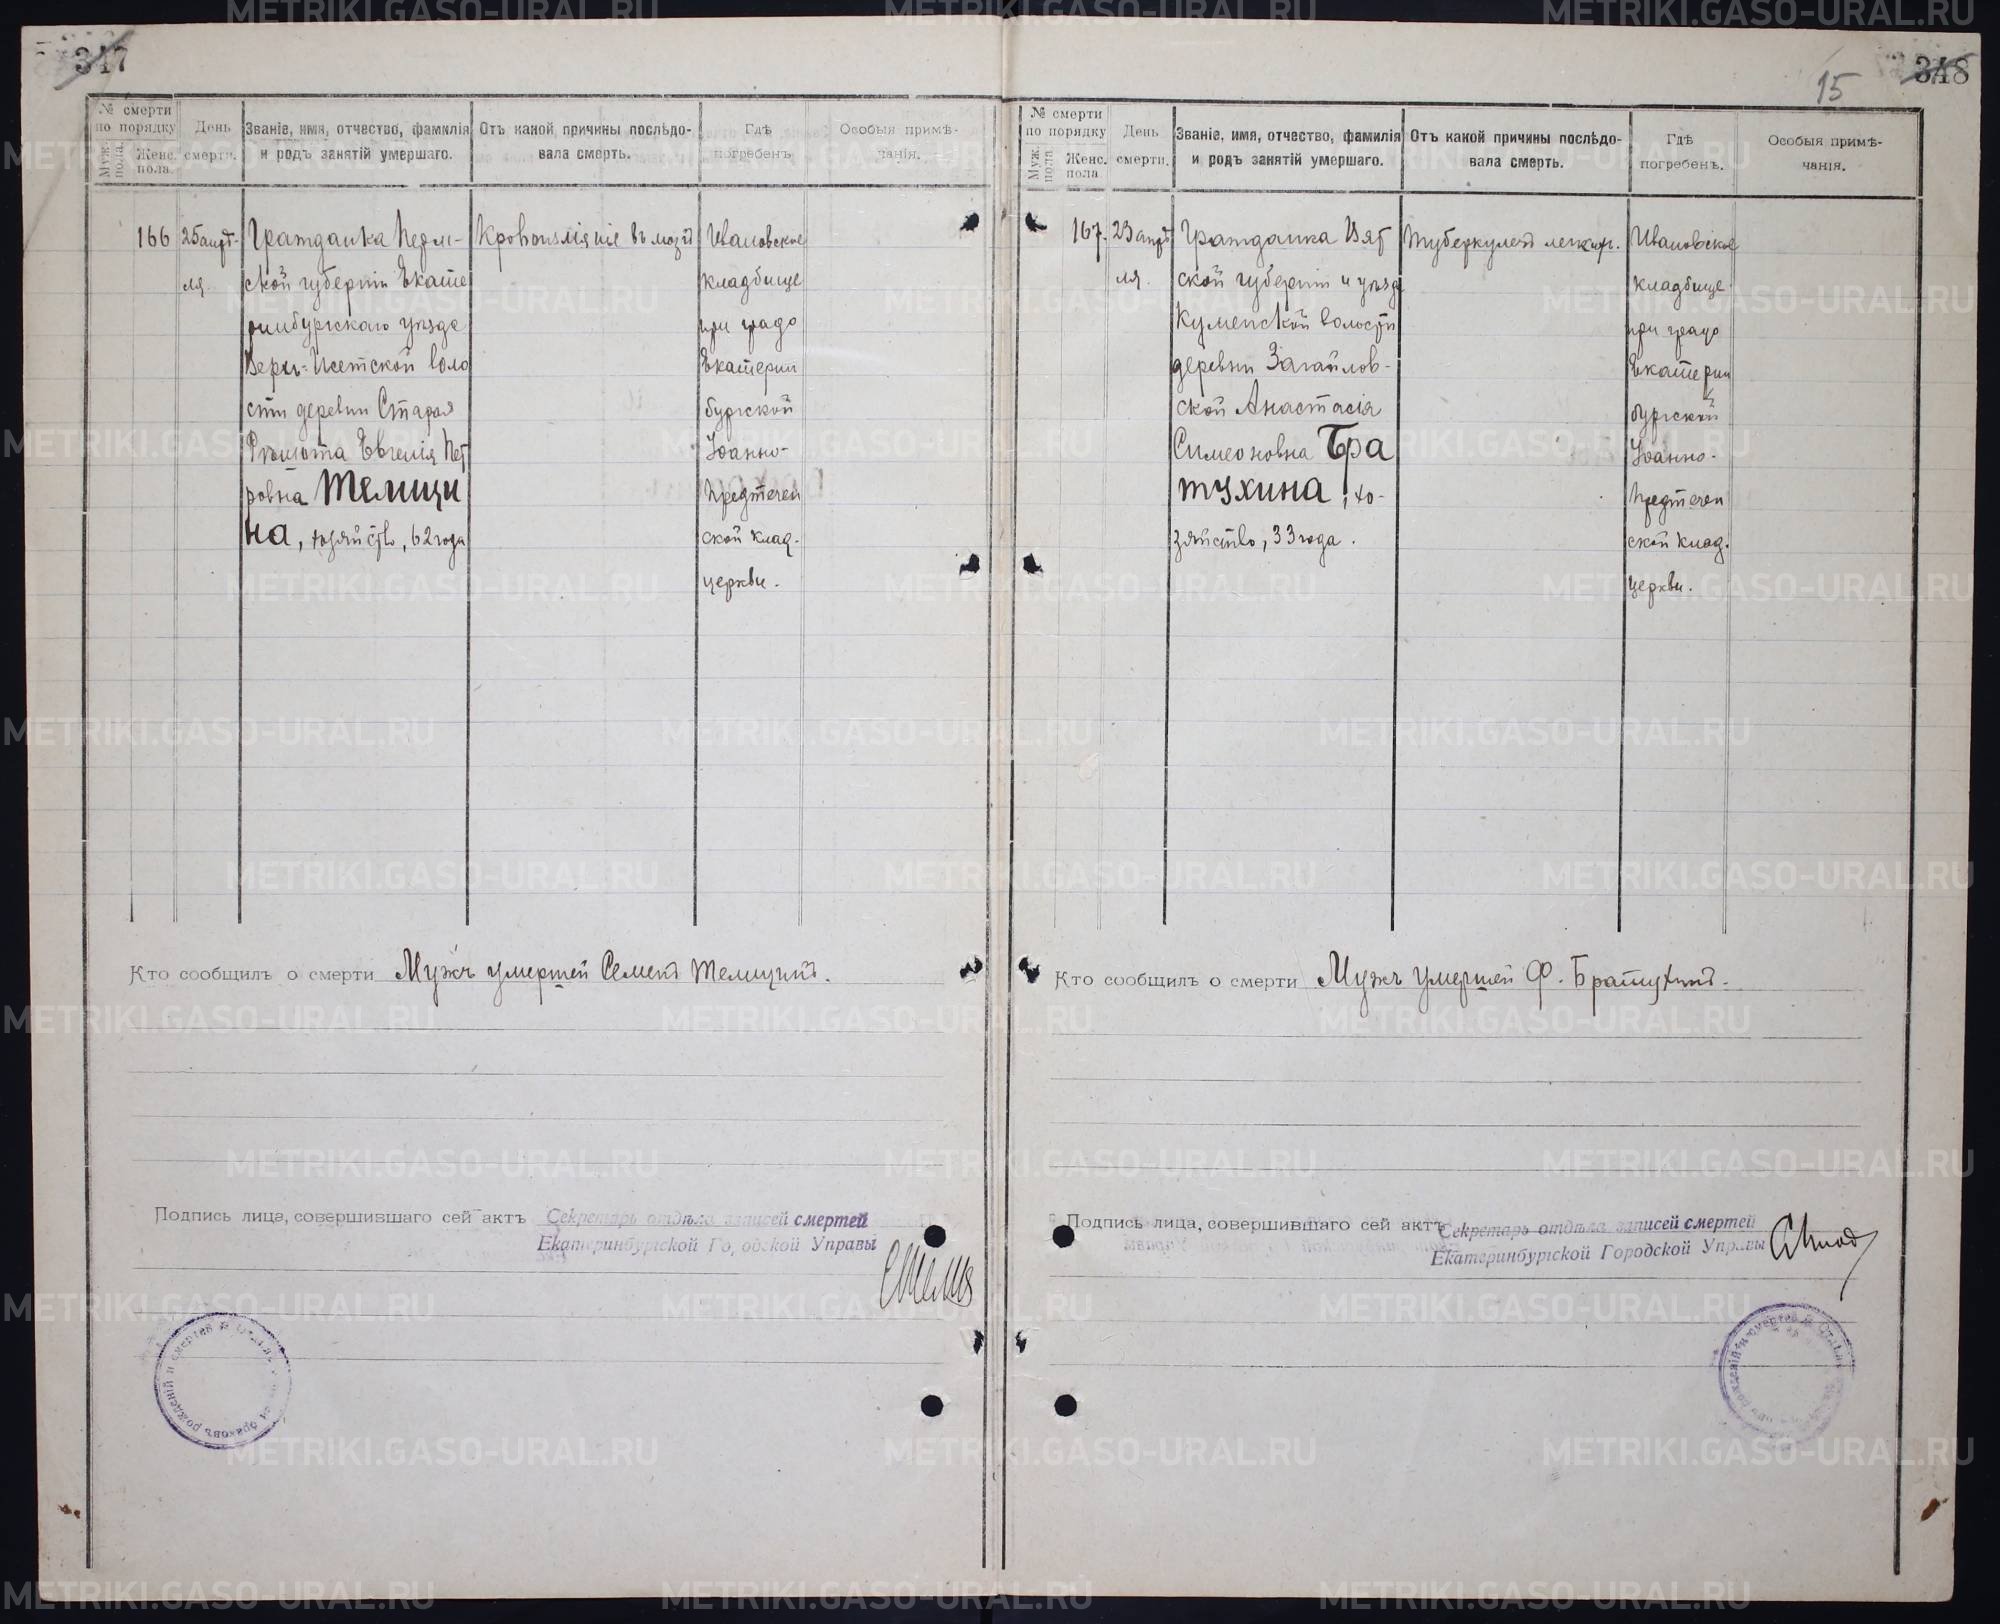 347
№ смерти по порядку
Муж. пола.
Женс. пола.
День смерти.
Званіе, имя, отчество, фамилія и родъ занятій умершаго.
Отъ какой причины послѣдовала смерть.
Гдѣ погребенъ.
Особыя примѣчанія.
166
25 апрѣ-
ля.
Гражданка Перм-
ской губерніи Екате
ринбургскаго уѣзда
Верх=Исетской воло
сти деревни Старая
Рѣшота Евгенія Пет
ровна Телицы
на, хозяйство, 62 года
Кровоизліяніе въ мозгъ
Ивановское
кладбище
при градо
Екатерин
бургской
Іоанно-
Предтечен
ской клад.
церкви.
Кто сообщилъ о смерти Мужъ умершей Семенъ Телицинъ.
Подпись лица, совершившаго сей актъ Секретарь отдѣла записей смертей
Екатеринбургской Городской Управы
348
15
№ смерти по порядку
Муж. пола
Женс. пола.
День смерти.
Званіе, имя, отчество, фамилія и родъ занятій умершаго.
Отъ какой причины послѣдовала смерть.
Гдѣ погребенъ.
Особыя примѣчанія.
167.
23 апрѣ
ля.
Гражданка Вят
ской губерніи и уѣзда
Куменской волости
деревни Загайнов-
ской Анастасія
Симеоновна Бра
тухина, хо-
зяйство, 33 года.
Туберкулезъ легких.
Ивановское
кладбище
при градо
Екатерин
бургской
Іоанно-
Предтечен
ской клад.
церкви.
Кто сообщилъ о смерти Мужъ умершей Ф. Братухинъ.
Подпись лица, совершившаго сей актъ Секретарь отдѣла записей смертей
Екатеринбургской Городской Управы
METRIKI.GASO-URAL.RU